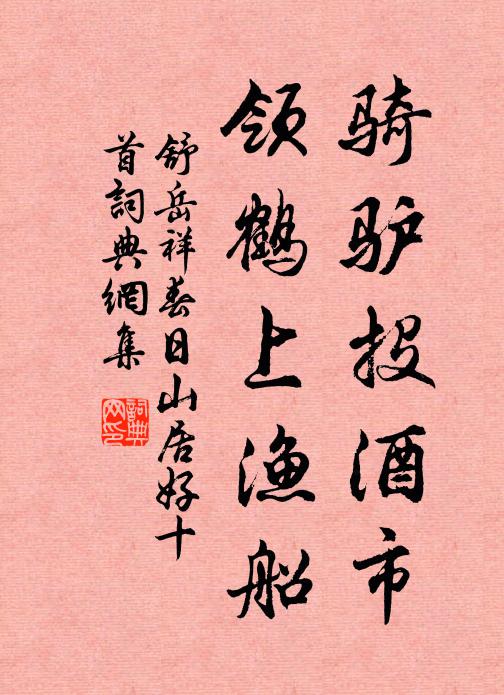 骑驴投酒市
领鹤上渔船
舒岳祥春日山居好十
首詞典網集
詞典
网印